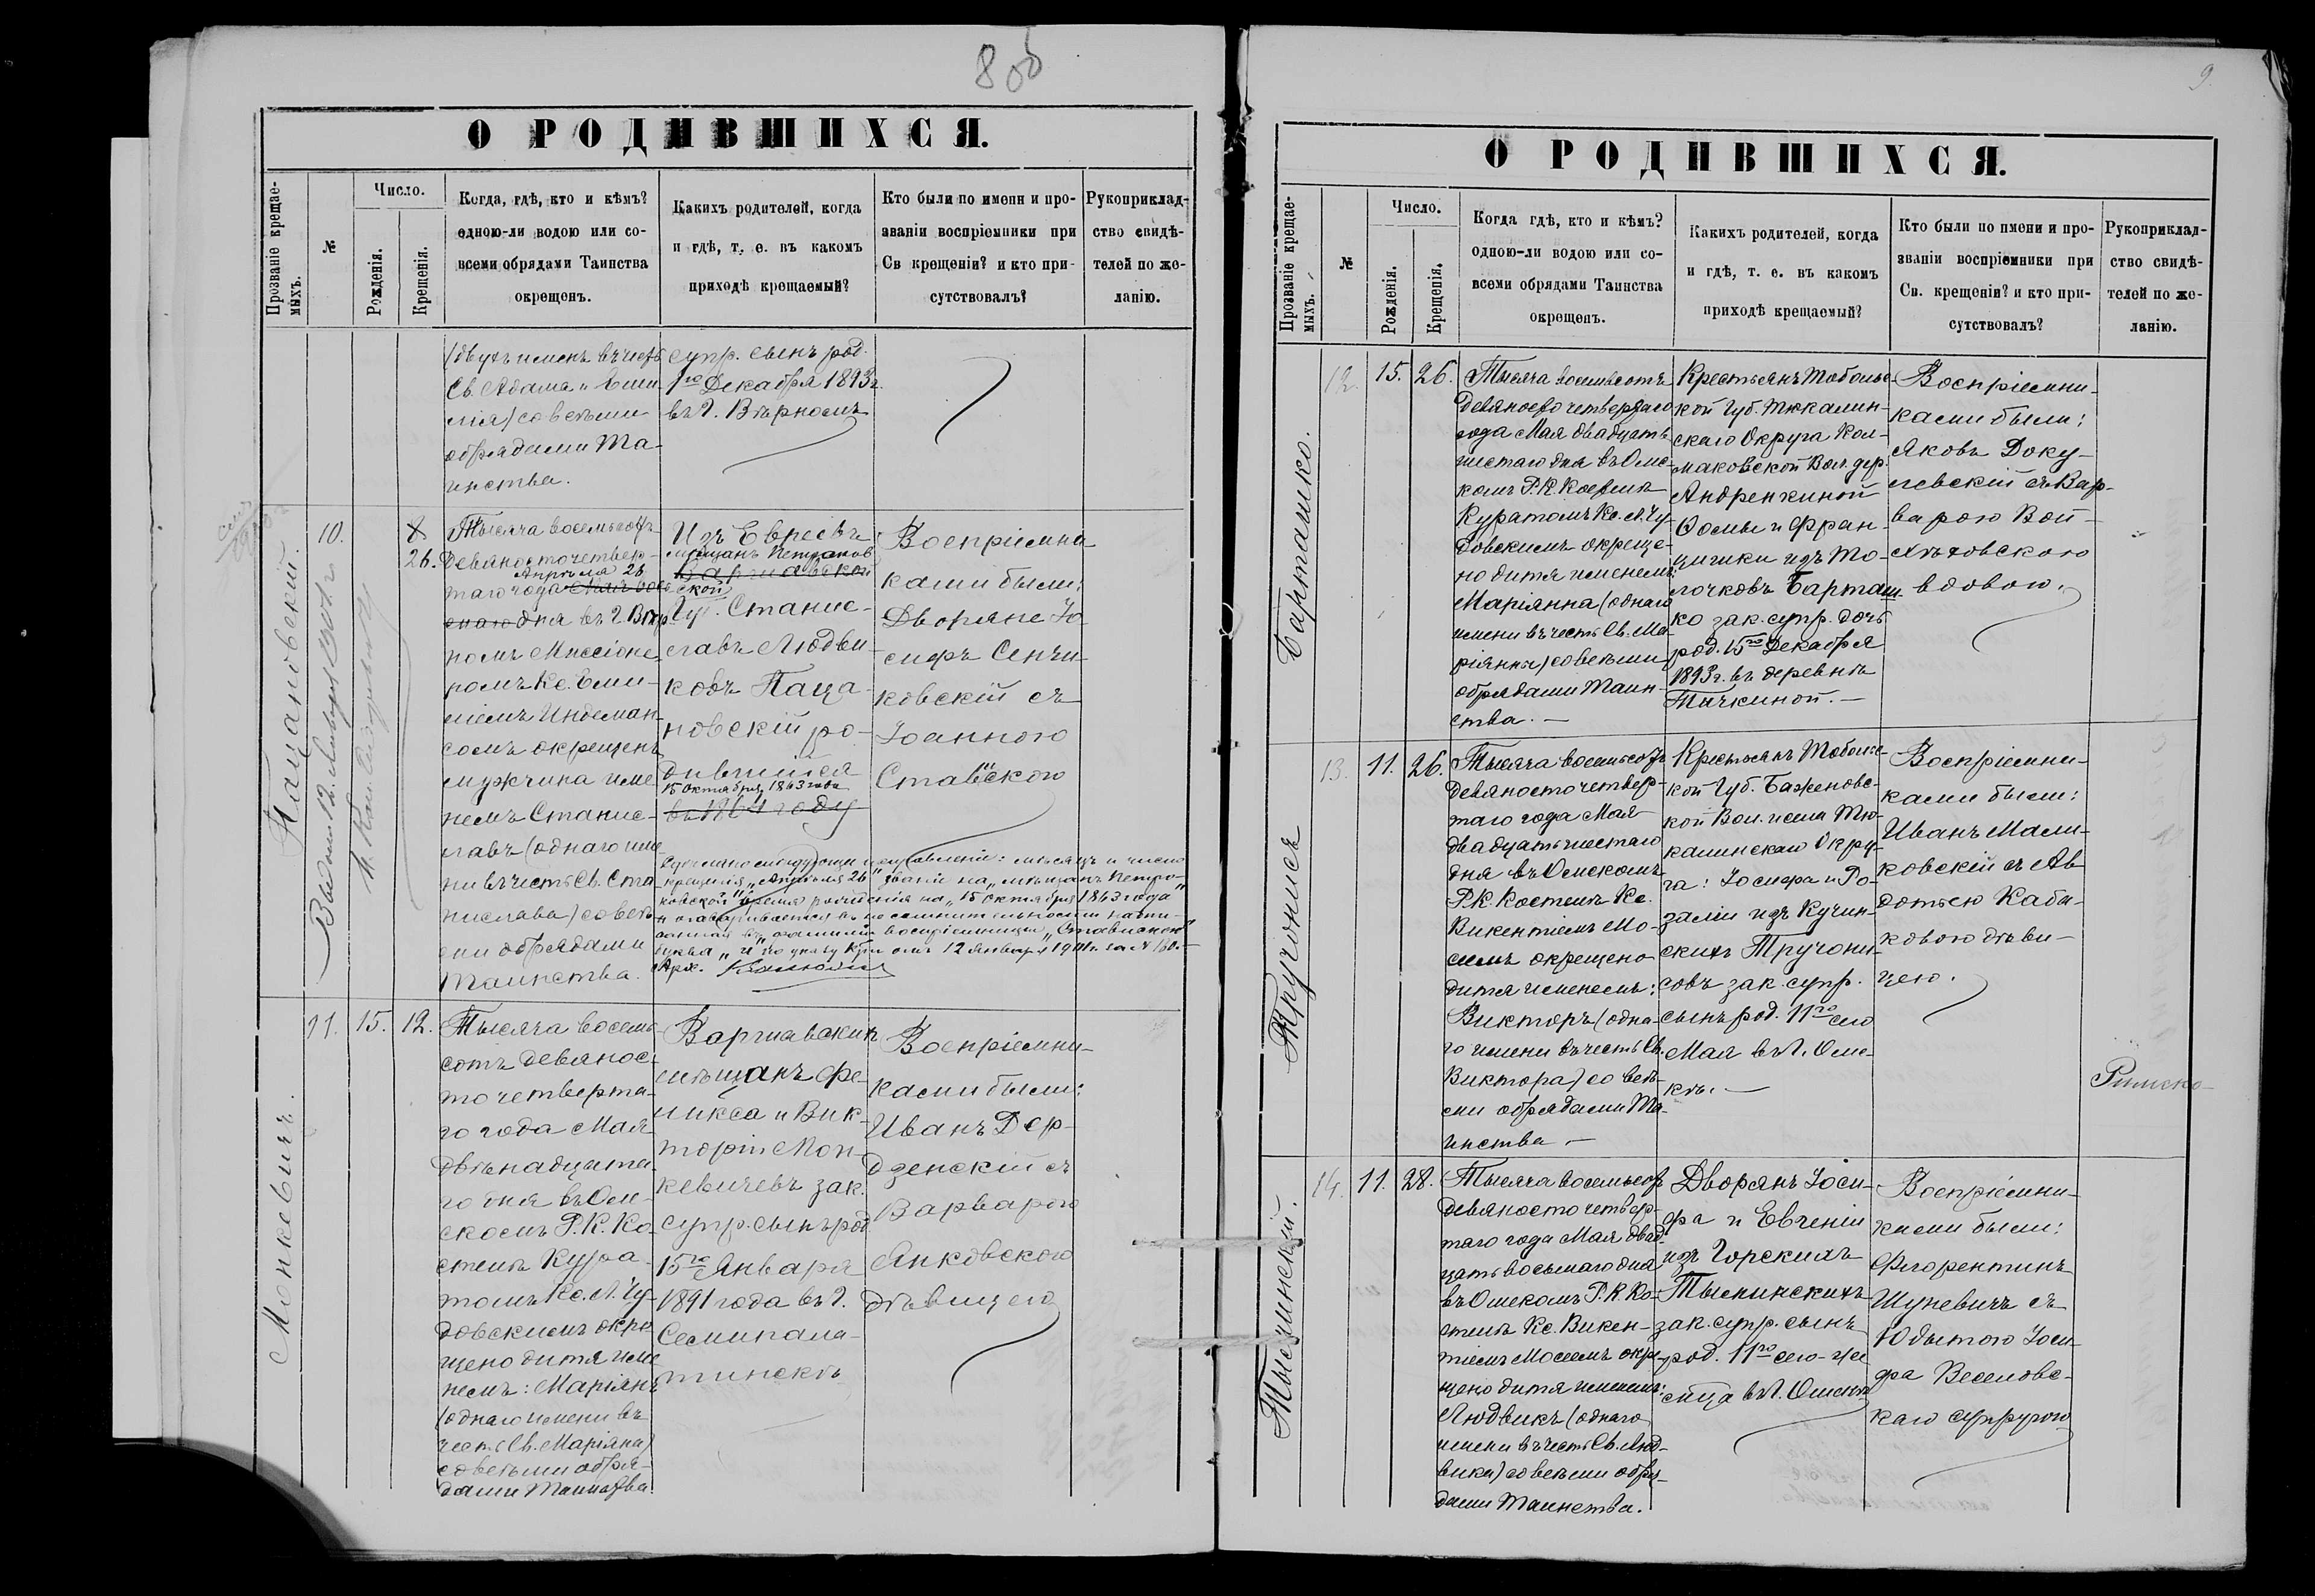 8 об
О РОДИВШИХСЯ.
Прозваніе крещае-
мыхъ.
№
Число.
Рожденія.
Крещенія.
Когда, гдѣ, кто и кѣмъ?
одною-ли водою или со-
всеми обрядами Таинства
окрещенъ.
Каких родителей, когда
и гдѣ, т. е. въ какомъ
приходѣ крещаемый?
Кто были по имени и про-
званіи воспріемники при
Св крещеніи? и кто при-
сутствовалъ?
Рукоприклад-
ство свидѣ-
телей по же-
ланію.
(двухъ именъ въ честь
Св. Адама и Эми-
лія) совсѣми
обрядами Та-
инства.
супр. сынъ род.
1го Декабря 1893 г.
въ г. Вѣрномъ
Пацановскій.
Выдана 12. Января 1901 г.
10.
26.
Тысяча восемьсотъ
девяносто четвер-
Апрѣля 26
таго года
дня въ г Вѣр-
номъ Миссіоне-
ромъ Кс. Эми-
ліемъ
окрещенъ
мужчина име-
немъ Станис-
лавъ (однаго име-
ни въ честь Св. Ста-
нислава) совсѣ-
ми обрядами
Таинства.
Изъ Евреевъ
мѣщанъ Петроков
ской
Губ. Станис-
лавъ Людви-
ковъ Паца-
новскій ро-
дившійся
15 октября 1863 года
въ 1864 году
Воспріемни-
ками были:
Дворяне Іо-
сифъ Сенчи-
ковскій съ
Іоанною
Ставиской
крещенія „Апрѣля 26" званіе на „мѣщанъ Петро-
ковской" время рожденія на „15 октября 1863 года"
фамиліи воспріемницы „Ставиской"
буква „и" по указу отъ 12 Января 1901 г. за №
Монкевичъ.
11.
15.
12.
Тысяча восемь-
сотъ девянос-
то четверта-
го года Мая
двѣнадцата-
го дня въ Ом-
скомъ Р. К. Ко-
стелѣ Кура-
томъ Кс. Л. Чу-
довскимъ окре-
щено дитя име-
немъ: Маріянъ
(однаго имени въ
честь Св. Маріяна)
совсѣми обря-
дами Таинства.
Варшавскихъ
мѣщанъ Фе-
ликса и Вик-
торіи Мон-
кевичевъ зак.
супр. сынъ род.
15го Января
1891 года въ г.
Семипала-
тинскѣ
Воспріемни-
ками были:
Иванъ Дер-
дзенскій съ
Варварою
Янковскою
дѣвицею
9
О РОДИВШИХСЯ.
Прозваніе крещае-
мыхъ.
№
Число.
Рожденія.
Крещенія.
Когда гдѣ, кто и кѣмъ?
одною-ли водою или со-
всеми обрядами Таинства
окрещенъ.
Каких родителей, когда
и гдѣ, т. е. въ какомъ
приходѣ крещаемый?
Кто были по имени и про-
званіи воспріемники при
Св. крещеніи? и кто при-
сутствовалъ?
Рукоприклад-
ство свидѣ-
телей по же-
ланію.
Барташко.
12.
15.
26.
Тысяча восемьсотъ
девяносто четвертаго
года Мая двадцать
шестаго дня въ Омс-
комъ Р. К. Костелѣ
Куратомъ Кс. Л. Чу-
довскимъ окреще-
но дитя именемъ:
Маріянна (однаго
имени въ честь Св. Ма-
ріянны) совсѣми
обрядами Таин-
ства. —
Крестьянъ Тобольс-
кой Губ. Тюкалин-
скаго Округа Кол-
маковской Вол. дер.
Андренкиной
Ѳомы и Фран-
цишки изъ То-
лочковъ Барташ-
ко зак. супр. дочь
род. 15го Декабря
1893 г. въ деревнѣ
Тычкиной. —
Воспріемни-
ками были:
Яковъ Доку-
левскій съ Вар-
варою Вой-
вдовою.
Тручонисъ
13.
11.
26.
Тысяча восемьсотъ
девяносто четвер-
таго года Мая
двадцать шестаго
дня въ Омскомъ
Р. К. Костелѣ Кс.
Викентіемъ Мо-
семъ окрещено
дитя именемъ:
Викторъ (одна-
го имени въ честь Св.
Виктора) со всѣ-
ми обрядами Та-
инства —
Крестьянъ Тобольс-
кой Губ. Баженовс-
кой Вол. и села Тю-
калинскаго Окру-
га: Іосифа и Ро-
заліи изъ Кучин-
скихъ Тручони-
совъ зак. супр.
сынъ род. 11го сего
Мая въ г. Омс-
кѣ. —
Воспріемни-
ками были:
Иванъ Мали-
ковскій съ Ав-
дотьею Каба-
ковою дѣви-
цею.
Римско-
Тысминскій.
14.
11.
28.
Тысяча восемьсотъ
девяносто четвер-
таго года Мая двад-
цать восьмаго дня
въ Омскомъ Р. К. Ко-
стелѣ Кс. Викен-
тіемъ Мосемъ окре-
щено дитя именемъ:
Людвикъ (однаго
имени въ честь Св. Люд-
вика) со всѣми обря-
дами Таинства.
Дворянъ Іоси-
фа и Евгеніи
изъ Горскихъ
Тысминскихъ
зак. супр. сынъ
род. 11го сего мѣ-
сяца въ г. Омскѣ
Воспріемни-
ками были:
Флорентинъ
Шуневичъ съ
Юдытою Іоси-
фа Веселовс-
каго супругою